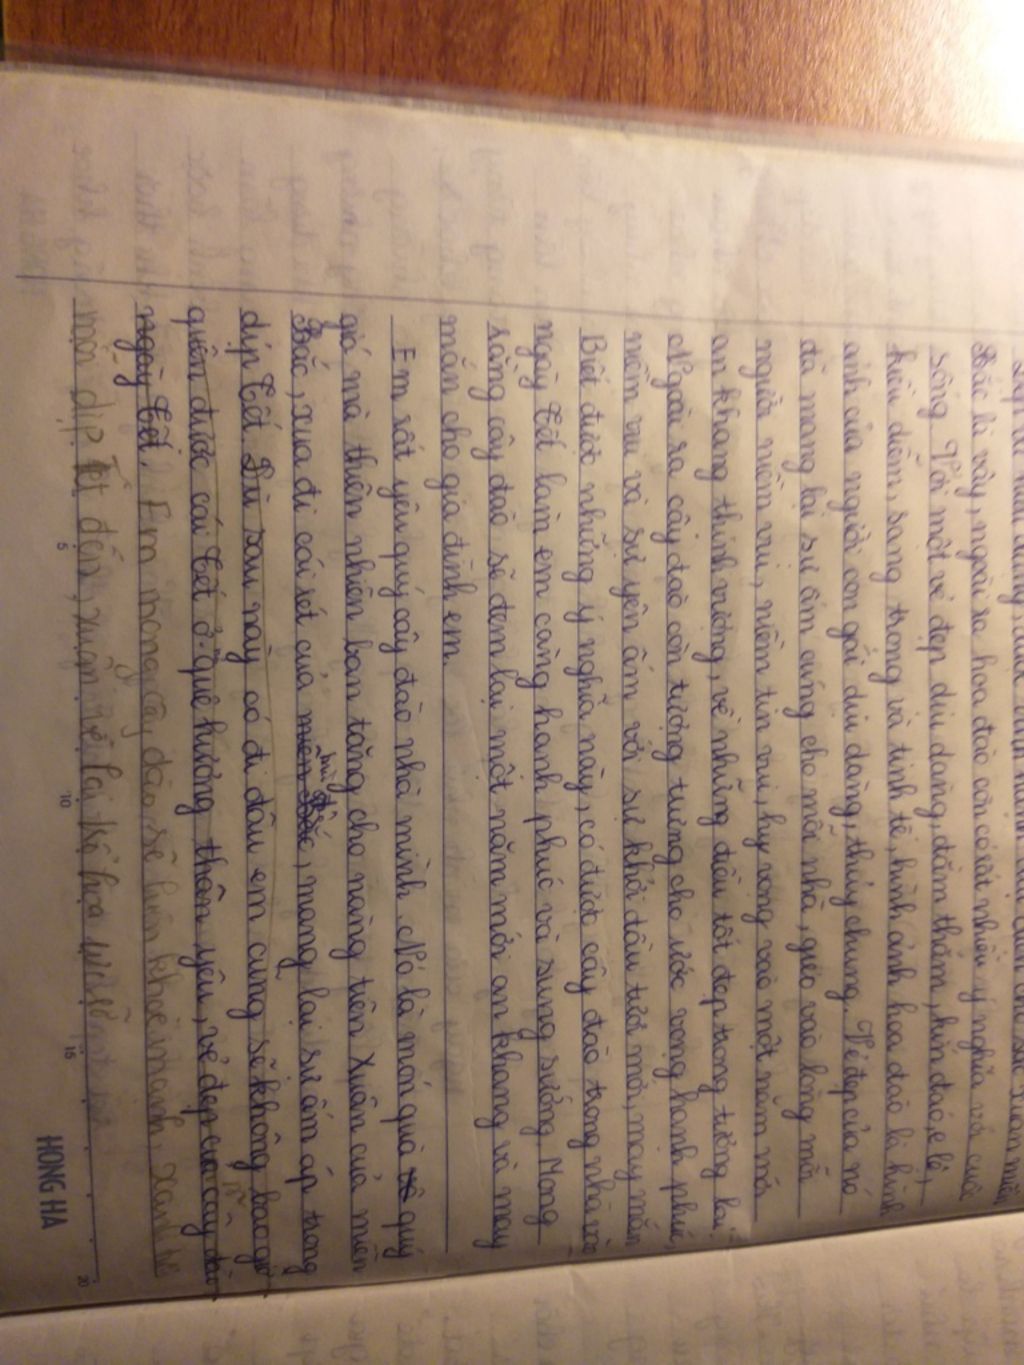 Bắc là vậy, ngoài ra hoa đào còn có rất nhiều ý nghĩa với cuộc
sống. Với một vẻ đẹp dịu dàng, đằm thắm, kín đáo, e lệ,
kiều diễm, sang trọng và tinh tế, hình ảnh hoa đào là hình
ảnh của người con gái dịu dàng, thủy chung. Vẻ đẹp của nó
đã mang lại sự ấm cúng cho mỗi nhà, gieo vào lòng mỗi
người niềm vui, niềm tin vui, hy vọng vào một năm mới
an khang thịnh vượng, về những điều tốt đẹp trong tương lai.
Ngoài ra cây đào còn tượng trưng cho ước vọng hạnh phúc,
niềm vui và sự yên ấm với sự khởi đầu tươi mới, may mắn
Biết được những ý nghĩa này, có được cây đào trong nhà vào
ngày tết làm em càng hạnh phúc và sung sướng. Mong
rằng cây đào sẽ đem lại một năm mới an khang và may
mắn cho gia đình em.
Em rất yêu quý cây đào nhà mình. Nó là món quà quý
giá mà thiên nhiên ban tặng cho nàng tiên Xuân của miền
Bắc, xua đi cái rét của mùa, mang lại sự ấm áp trong
dịp tết. Dù sau này có đi đâu em cũng sẽ không bao giờ
quên được cái tết ở quê hương thân yêu, vẻ đẹp của cây đào
ngày tết. Em mong cây đào sẽ luôn khỏe mạnh, xanh
mỗi dịp Tết đến, xuân về lại trổ hoa
5 10 15 20
HONG HA